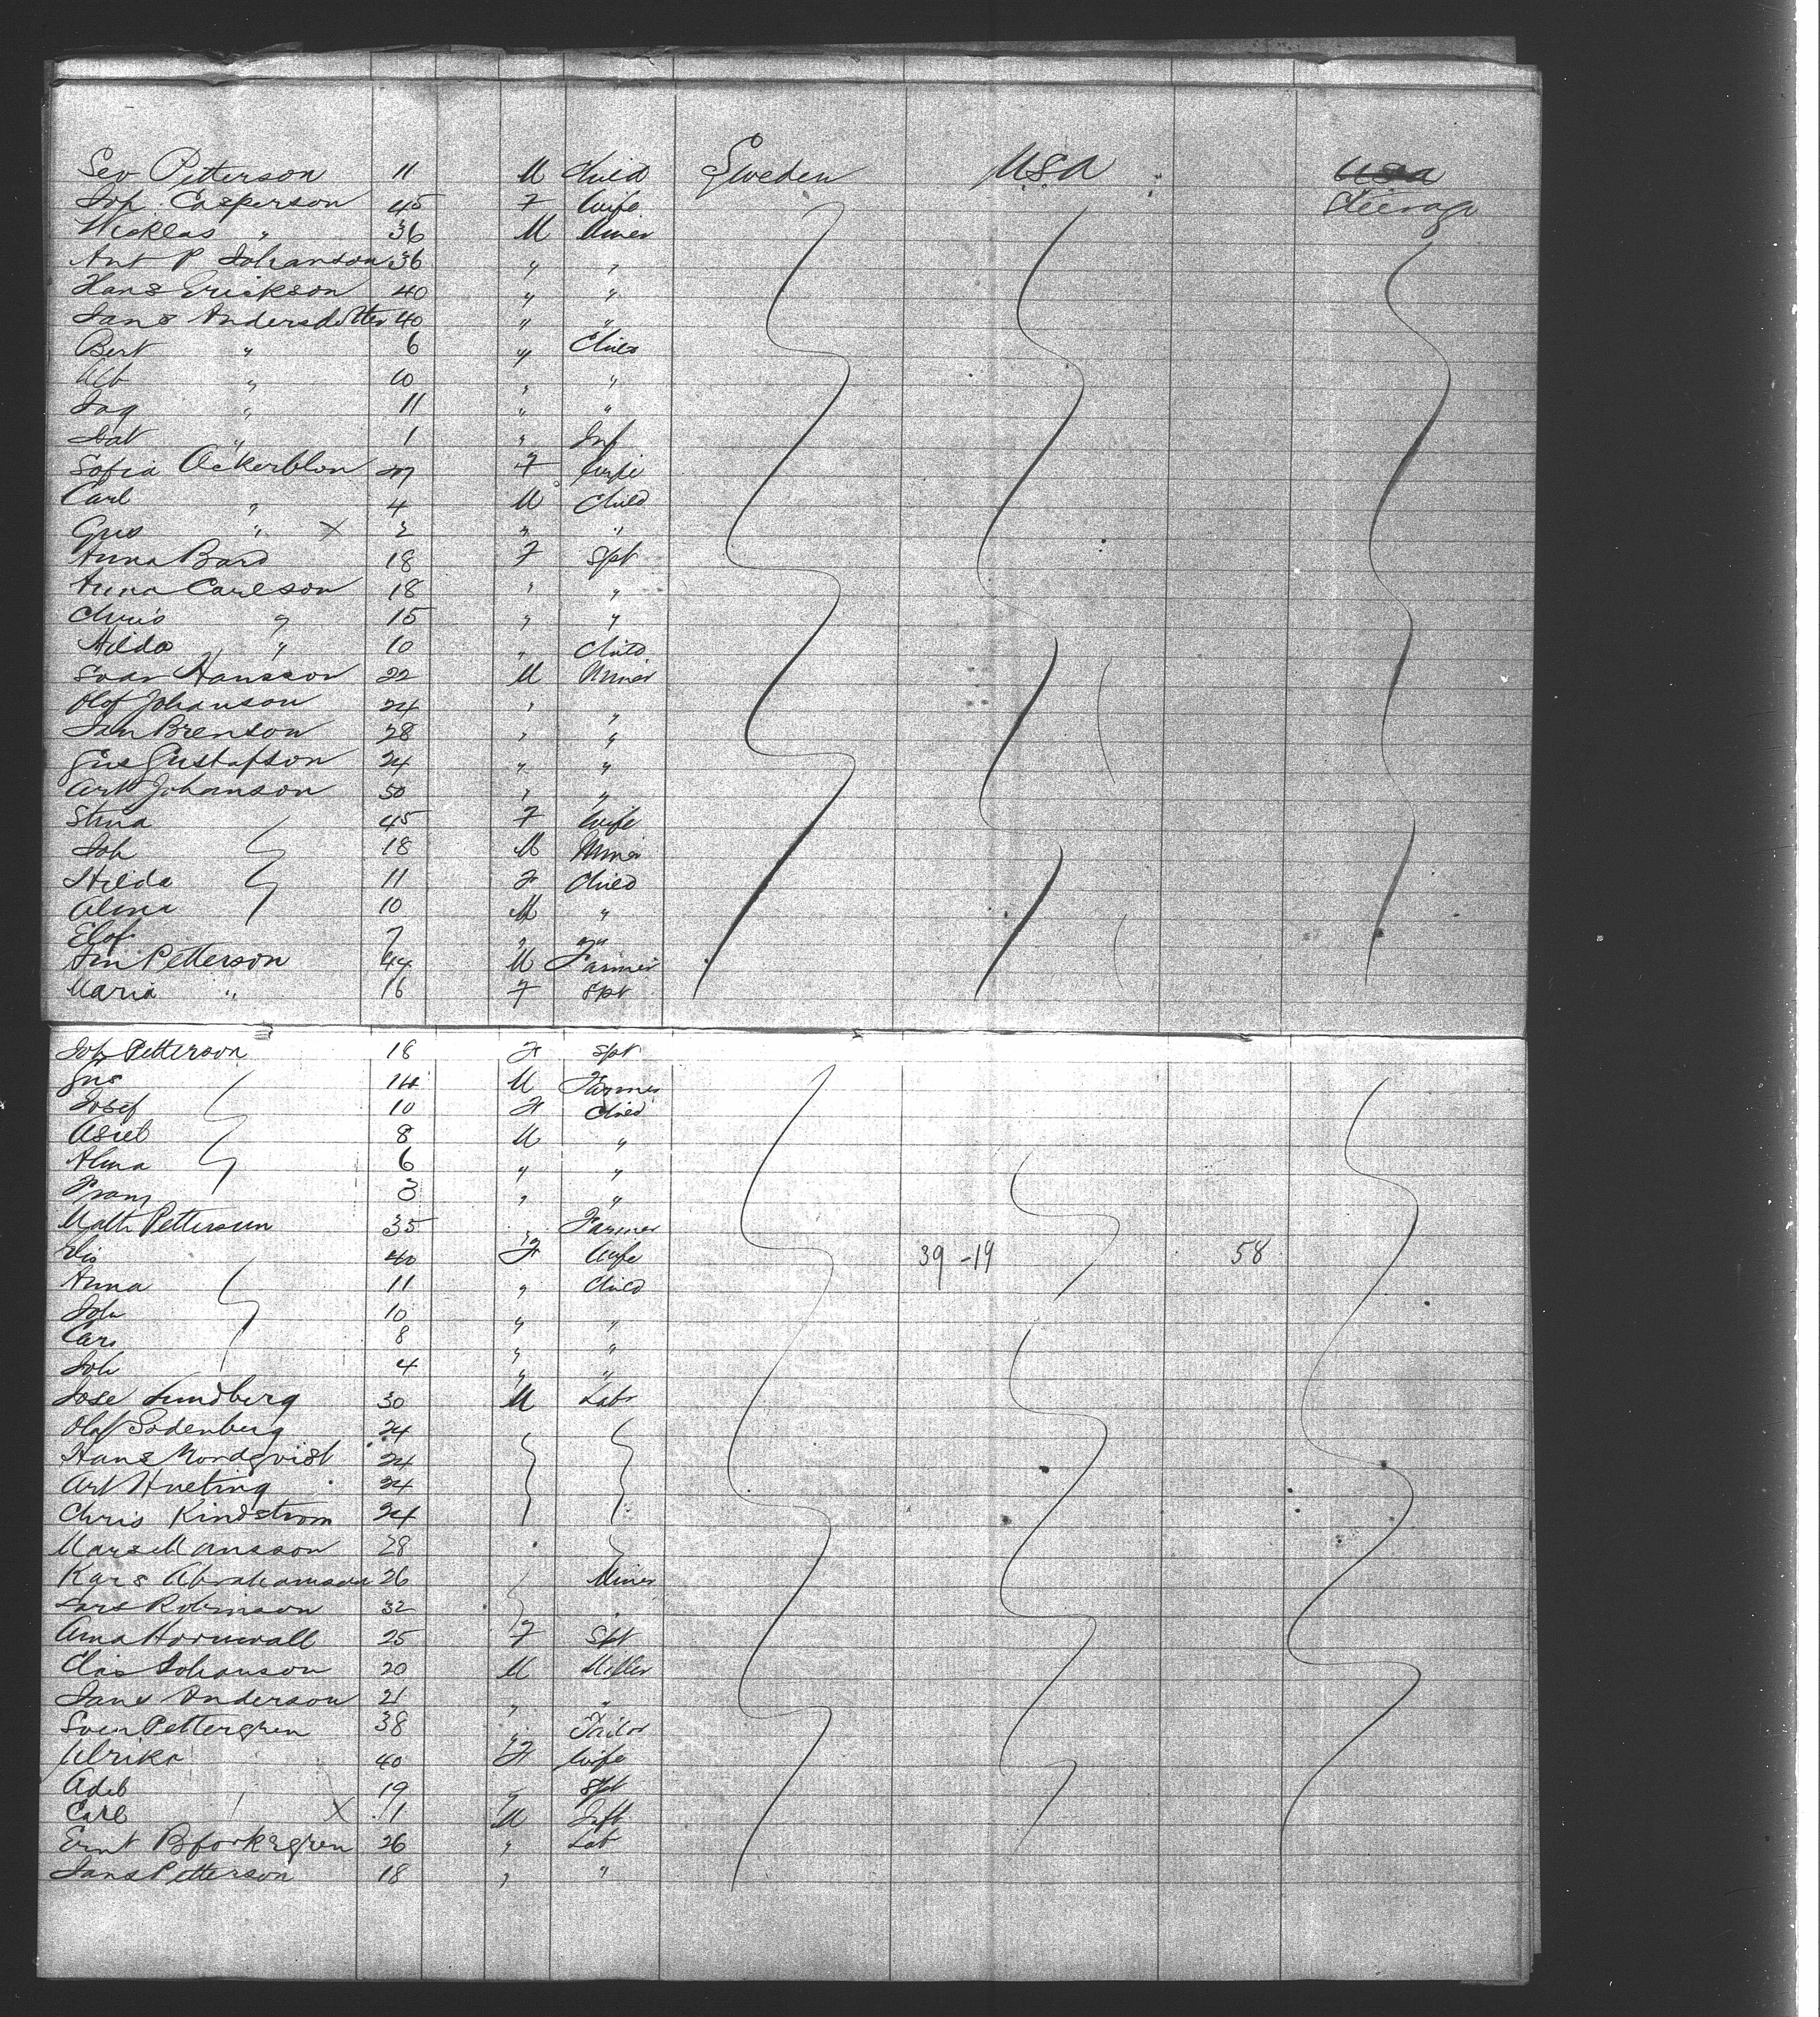 Sev Petterson 11 M Child Sweden USA USA
Joh. Casperson 45 F Wife Chicago
Nicklas " 36 M Miner
Ant P Johanson 36 " "
Hans Erickson 40 " "
Jans Andersdotter 40 " "
Bert " 6 " Child
Alb " 10 " "
Jag " 11 " "
" 1 " Inf
Sofia Ackerblon 27 F Wife
Carl " 4 M Child
Gus " X 2 " "
Anna Bard 18 F Spt
Anna Carlson 18 " "
Chris " 15 " "
Hilda " 10 " Child
Svan Hansson 22 M Miner
Olof Johanson 24 " "
Jan Brenson 28 " "
Gus Gustafson 24 " "
Art Johanson 50 " "
Stina 45 F Wife
Joh 18 M Miner
Hilda 11 F Child
Alma 10 M "
Elof 7 " "
Petterson 44 M Farmer
Maria " 16 F Spt
Joh Petterson 18 F Spt
Gus 14 M Farmer
Josef 10 F Child
Axel 8 M "
Alma 6 " "
Franz 3 " "
Math Petterson 35 " Farmer
40 F Wife 39 -19 58
Anna 11 " Child
Joh 10 " "
Carl 8 " "
Joh 4 " "
Jose Lundberg 30 M Labr
Olof Sodenberg 24
Hans Nordqvist 24
Art Hueting 24
Chris Kindstrom 24
Mars Mansson 28
Kars Abrahamson 26 Miner
Lars Robinson 32 "
Ama Hornwall 25 F Spt
Clas Johanson 20 M Miller
Jans Anderson 21 " "
Sven Pettergren 38 " Tailor
Ulrika 40 F Wife
Adel 19 " Spt
Carl X 1 M Inft
Ernt Bjorkegren 26 " Lab
Jans Petterson 18 " "